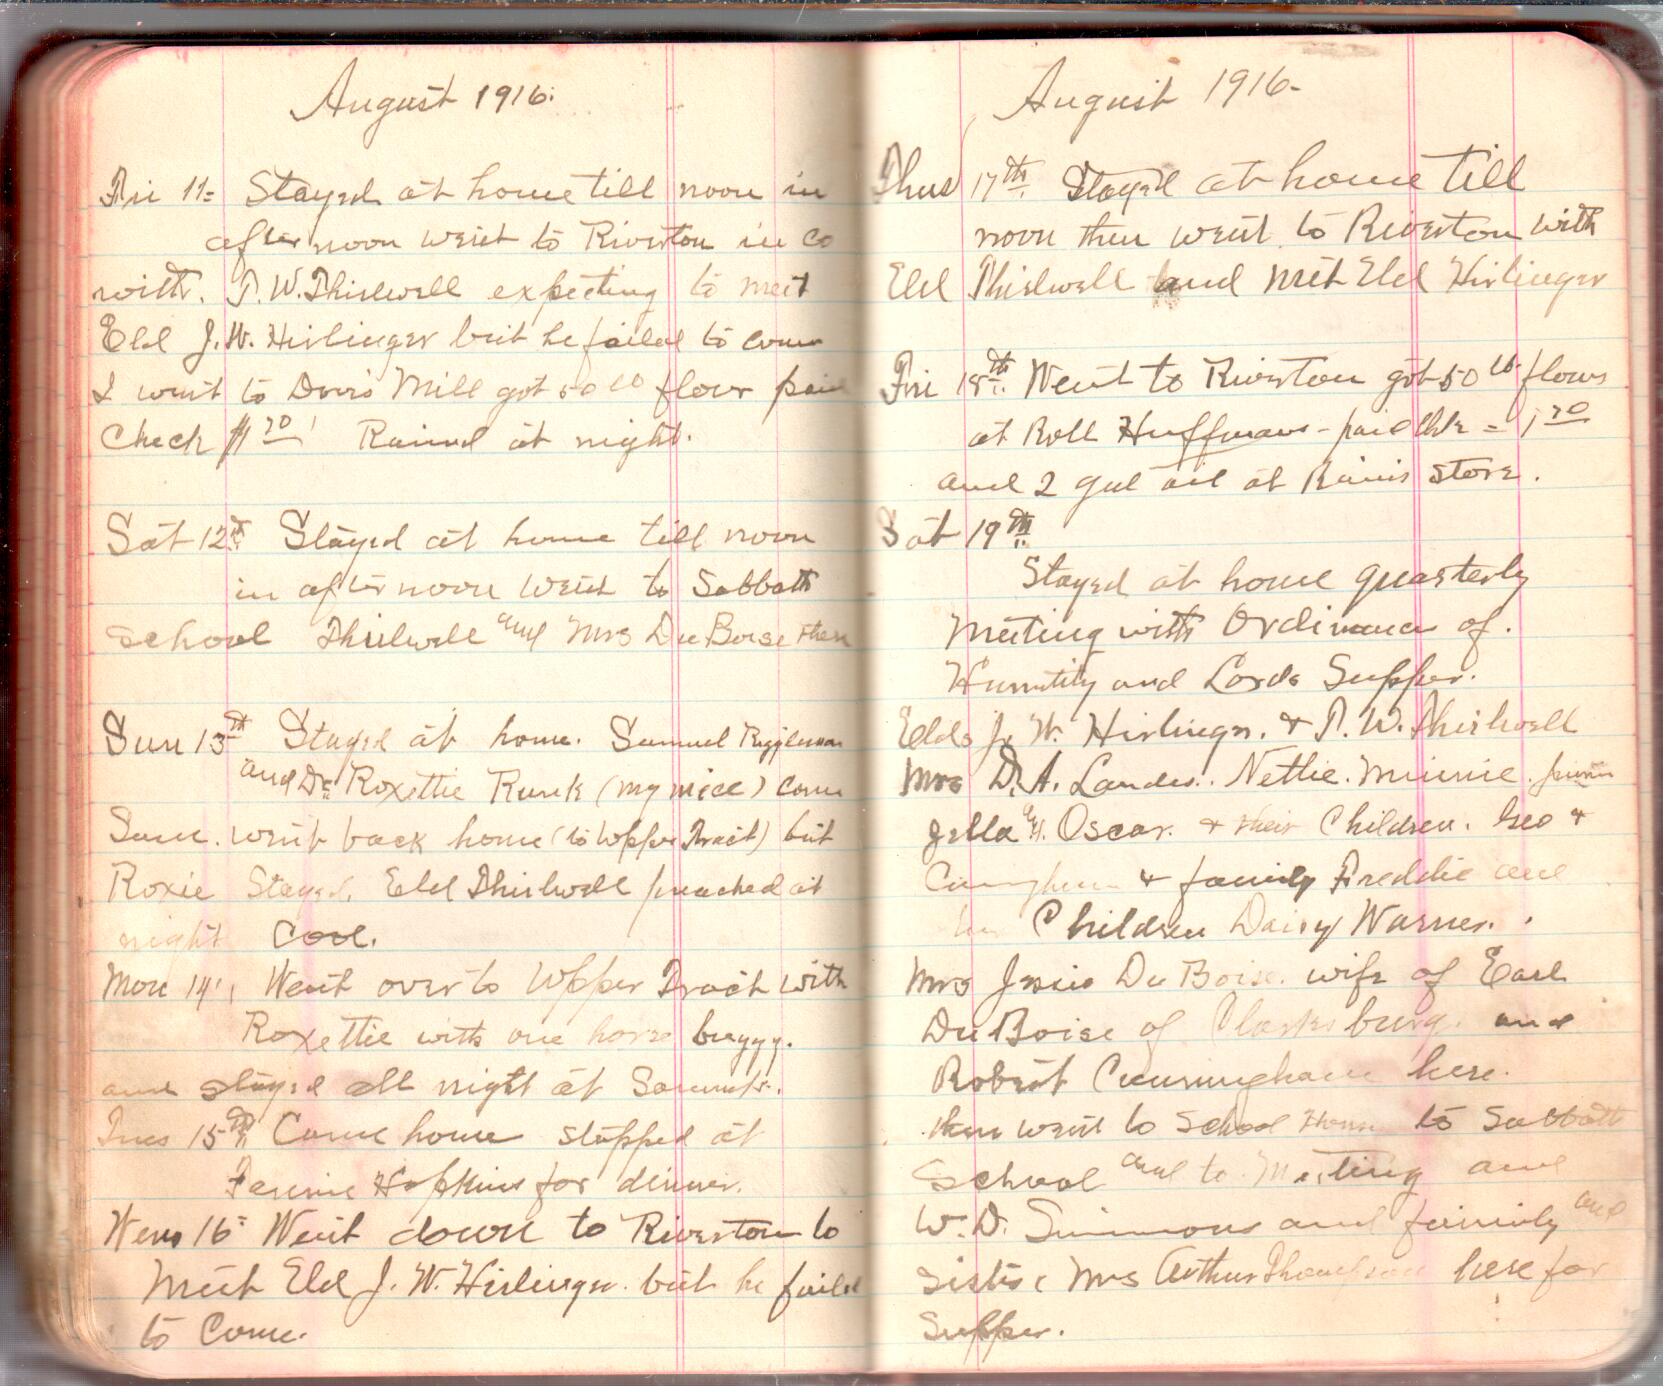 August 1916.
Fri 11= Stayed at home till noon in
afternoon went to Riverton in co
with. T. W. Thirlwell expecting to meet
Eld J. W. Hirlinger but he failed to come
I went to Davis Mill got 50 lb flour paid
Check $1 70 Rained at night.
Sat 12th Stayed at home till noon
in afternoon went to Sabbath
School Thirlwell and Mrs DuBoise then
Sun 13th Stayed at home. Samuel Riggleman
and Dr Roxettie Runk (my niece) came
Sam. went back home (to Upper Tract) but
Roxie Stayed. Eld Thirlwell preached at
night Cool.
Mon 14, Went over to Upper Tract with
Roxettie with one horse buggy.
and stayed all night at
Tues 15th Came home stopped at
Fannie Hopkins for dinner.
Wens 16= Went down to Riverton to
Meet Eld J. W. Hirlinger but he failed
to Come.
August 1916-
Thus 17th Stayed at home till
noon then went to Riverton with
Eld Thirlwell and met Eld Hirlinger
Fri 18th Went to Riverton got 50 lb flour
at Roll Huffmans - paid Chk = 1,70
and 2 gal oil at store.
Sat 19th
Stayed at home quarterly
Meeting with Ordinance of.
Humility and Lords Supper.
Elds J. W. Hirlinger. & T. W. Thirlwell
Mrs D. A. Landes. Nettie. Minnie.
Oscar. & their Children. Geo &
& family Freddie and
Children Daisy Warner.
Mrs Jessie DuBoise. wife of Earl
DuBoise of Clarksburg. and
Robert Cunningham here.
then went to School House to Sabbath
School and to Meeting and
W. D. Simmons and family and
Sister Mrs Arthur Thompson here for
Supper.